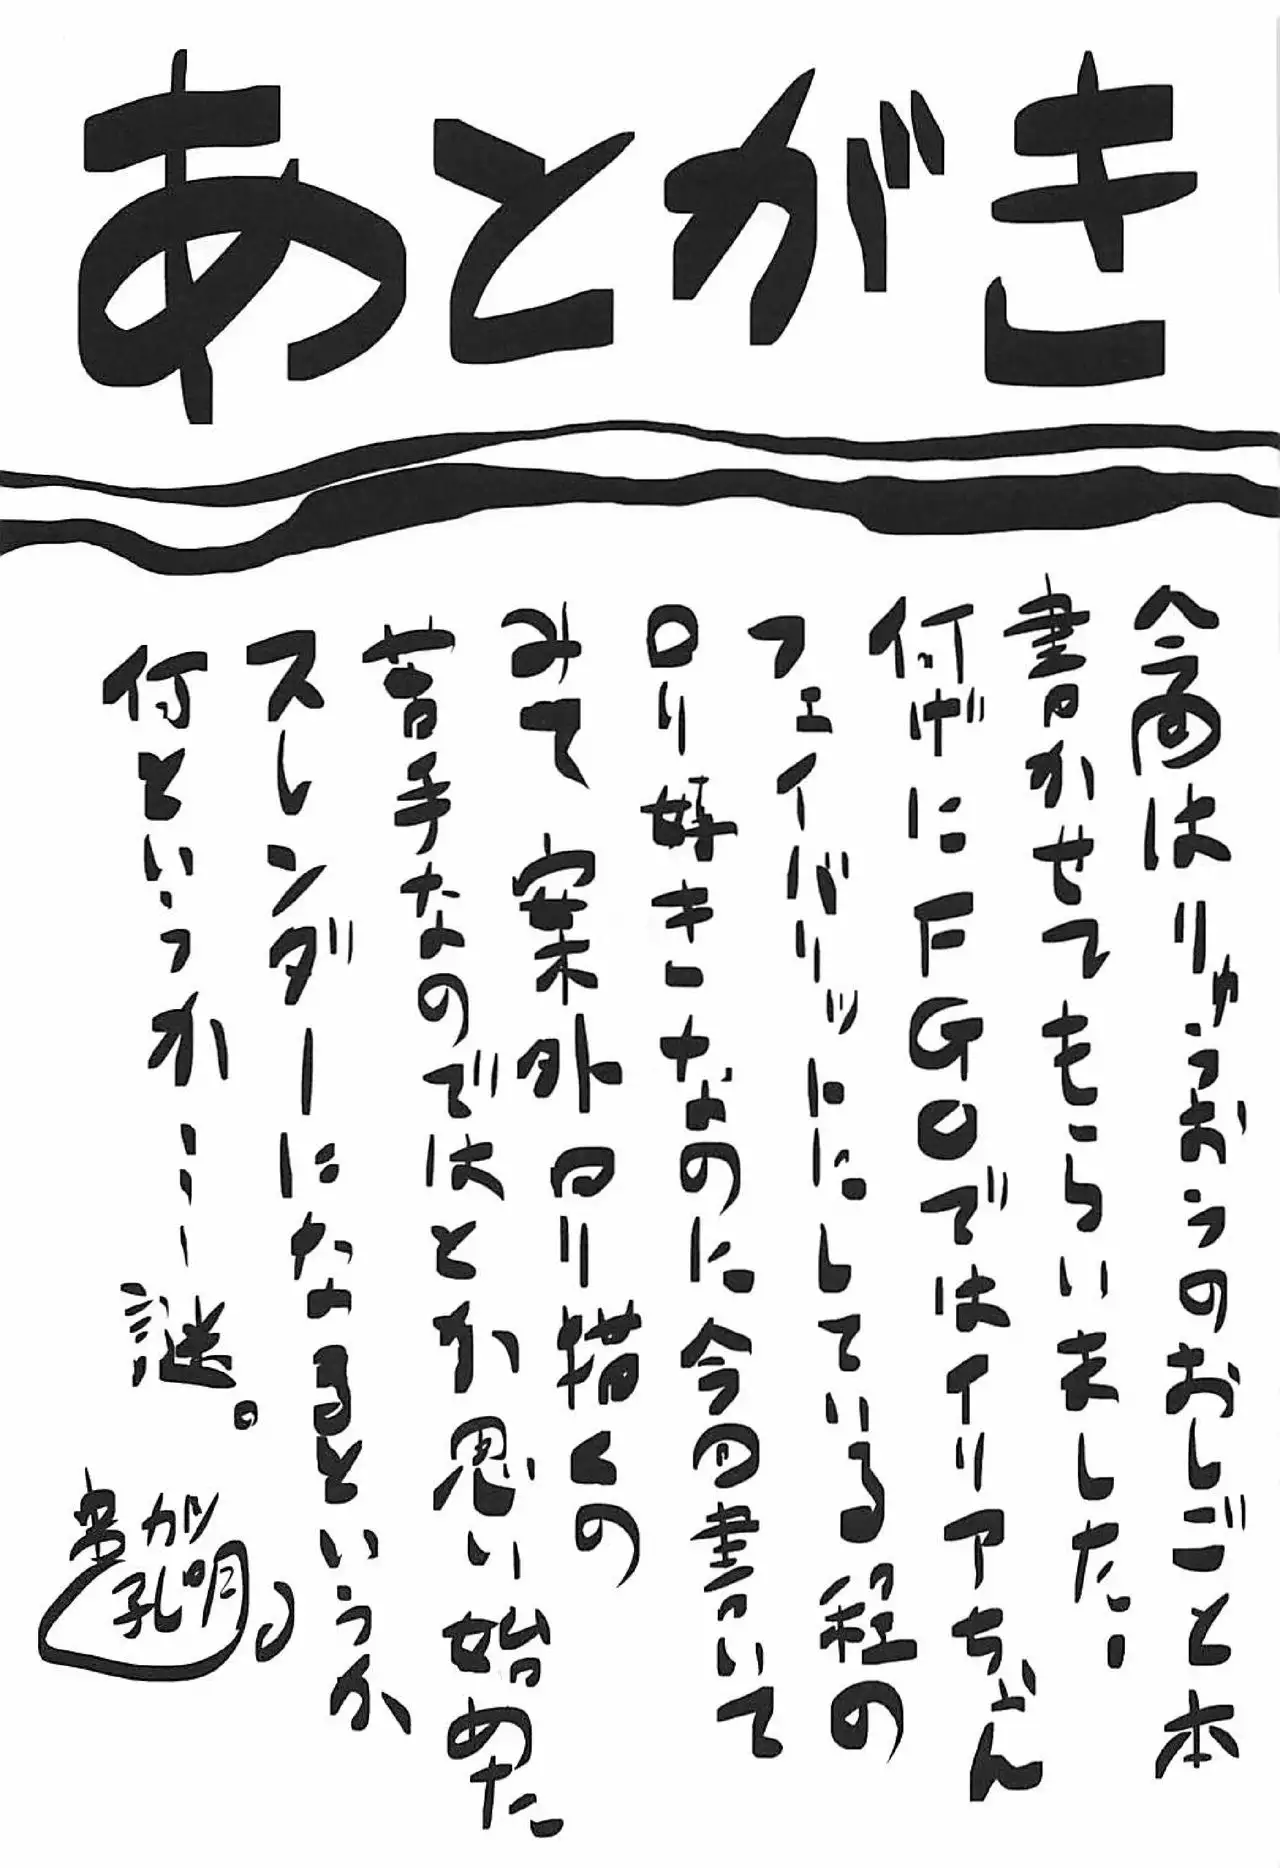 あとがき
今回はりゅうおうのおしごと本
書かせてもらいました!
何げにFGOではイリアちゃん
フェイバリットにしている程の
ロリ好きなのに今回書いて
みて 案外ロリ描くの
苦手なのではとか思い始めた
スレンダーになるというか
何というか…謎。
ガツ
孔明